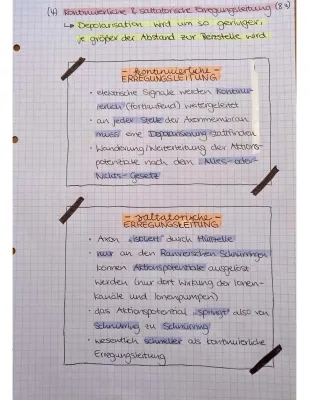 (4) Kontinuierliche & saltatorische Erregungsleitung (8.4)
↳ Depolarisation wird um so geringer,
je größer der Abstand zur Reizstelle wird
- kontinuierliche -
ERREGUNGSLEITUNG
• elektrische Signale werden kontinuier-
lich (fortlaufend) weitergeleitet
• an jeder Stelle der Axonmembran
muss eine Depolarisierung stattfinden
• Wanderung/Weiterleitung der Aktions-
potentiale nach dem „Alles-oder-
Nichts-Gesetz
- saltatorische -
ERREGUNGSLEITUNG
• Axon „isoliert" durch Hüllzelle
• nur an den Ranvierschen Schnürringen
können Aktionspotentiale ausgelöst
werden (nur dort Wirkung der Ionen-
kanäle und Ionenpumpen)
• das Aktionspotential „springt" also von
Schnürring zu Schnürring
• wesentlich schneller als kontinuierliche
Erregungsleitung